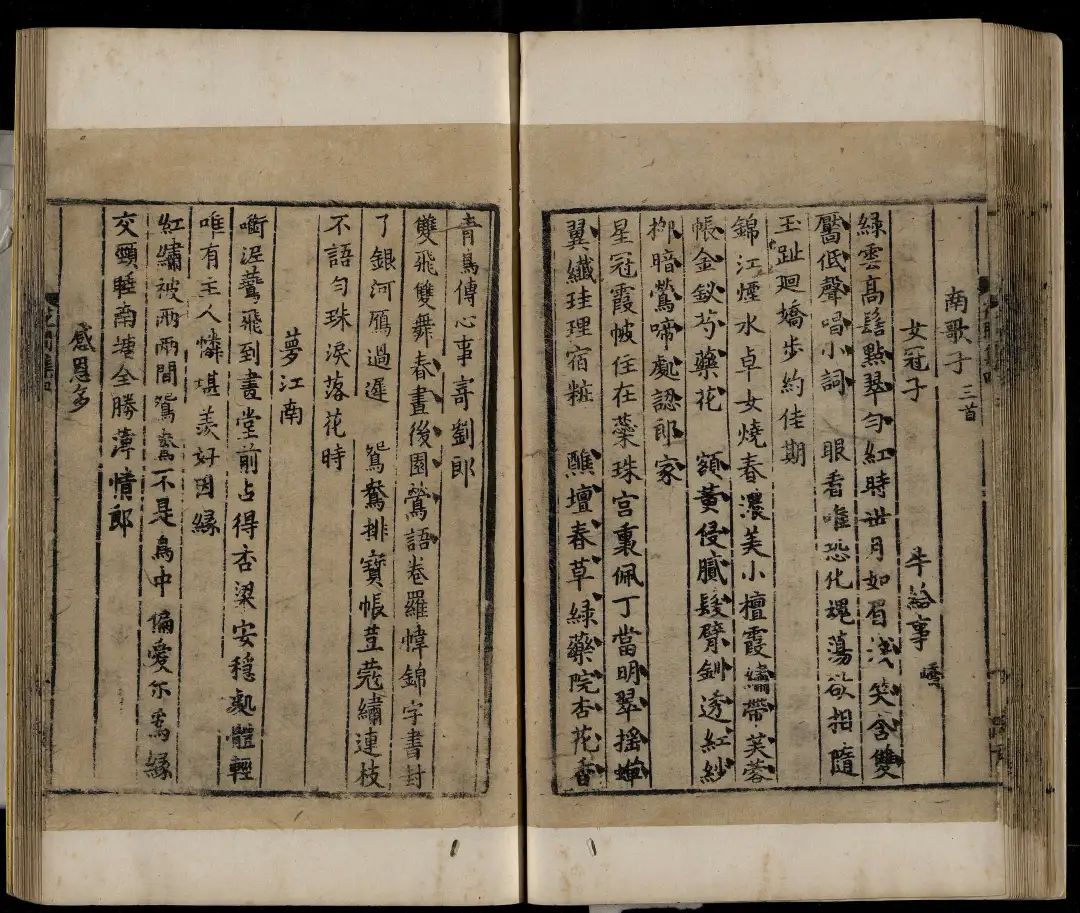 南歌子三首
女冠子 牛給事嶠
綠雲高髻點翠勻紅時世月如眉淺笑含雙
靨低聲唱小詞 眼看唯恐化魂蕩欲相隨
玉趾廻嬌步約佳期
錦江煙水卓女燒春濃美小檀霞繡帶芙蓉
帳金釵芍藥花 額黃侵膩髮臂釧透紅紗
柳暗鶯啼處認郎家
星冠霞帔住在蘂珠宮裏佩丁當明翠搖蟬
翼纖珪理宿粧 醮壇春草綠藥院杏花香
青鳥傳心事寄劉郎
雙飛雙舞春晝後園鶯語卷羅幃錦字書封
了銀河鴈過遲 鴛鴦排寶帳荳蔻繡連枝
不語勻珠淚落花時
夢江南
銜泥鷰飛到畫堂前占得杏梁安穩處體輕
唯有主人憐堪羨好因緣
紅繡被兩兩間鴛鴦不是鳥中偏愛尒爲緣
交頸睡南塘全勝薄情郎
感恩多